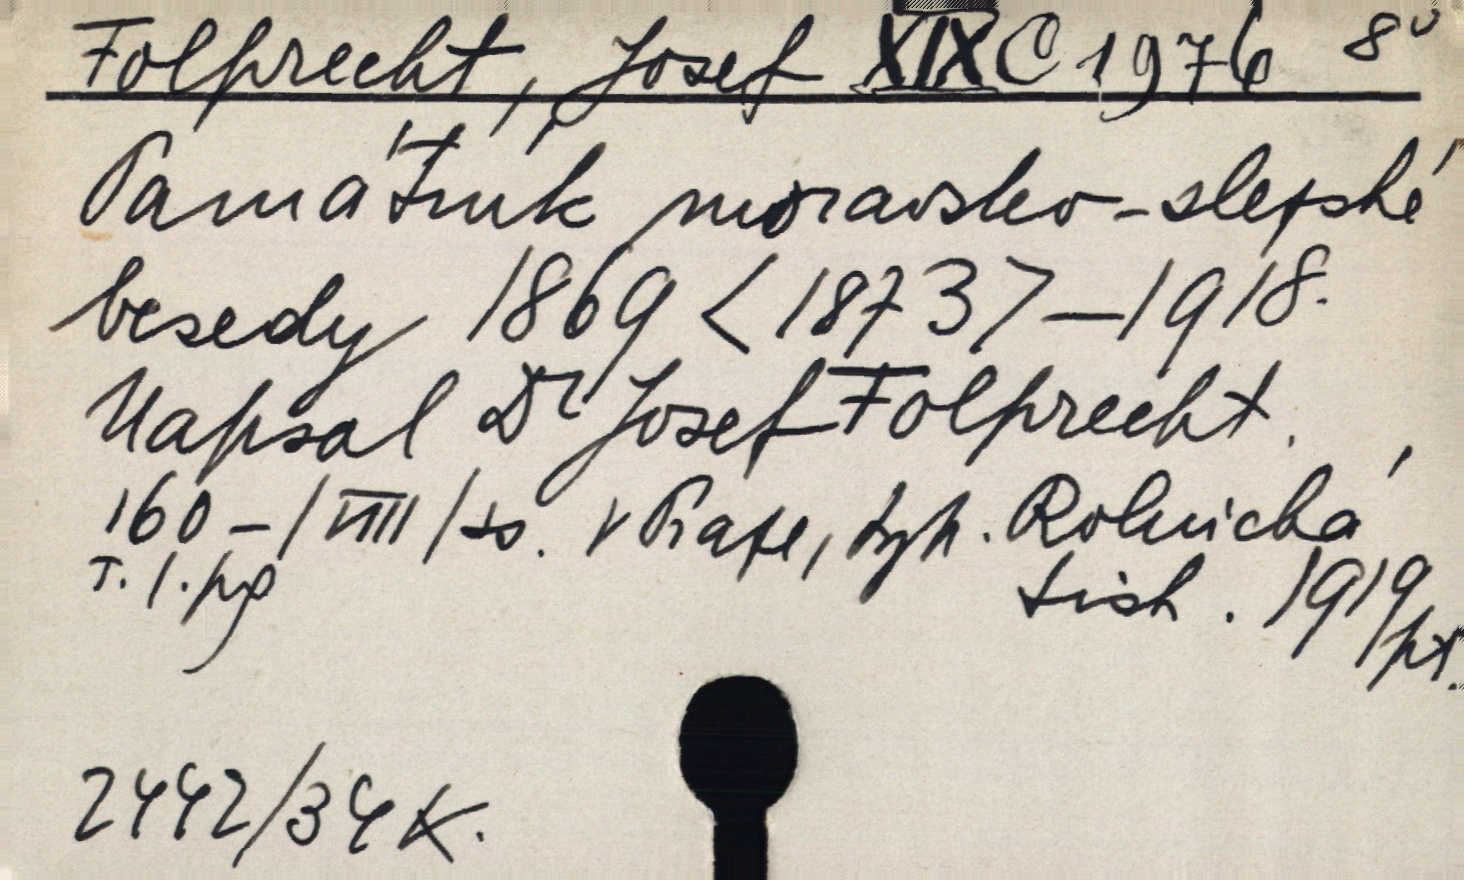 Folprecht, Josef XIX C 1976 8°
Památník moravsko-slezské
besedy 1869 <1873> — 1918.
Napsal Dr Josef Folprecht.
160 - /VIII/ s. V Praze, typ. Rolnická
T. 1. pg tisk. 1919
2442/34 K.